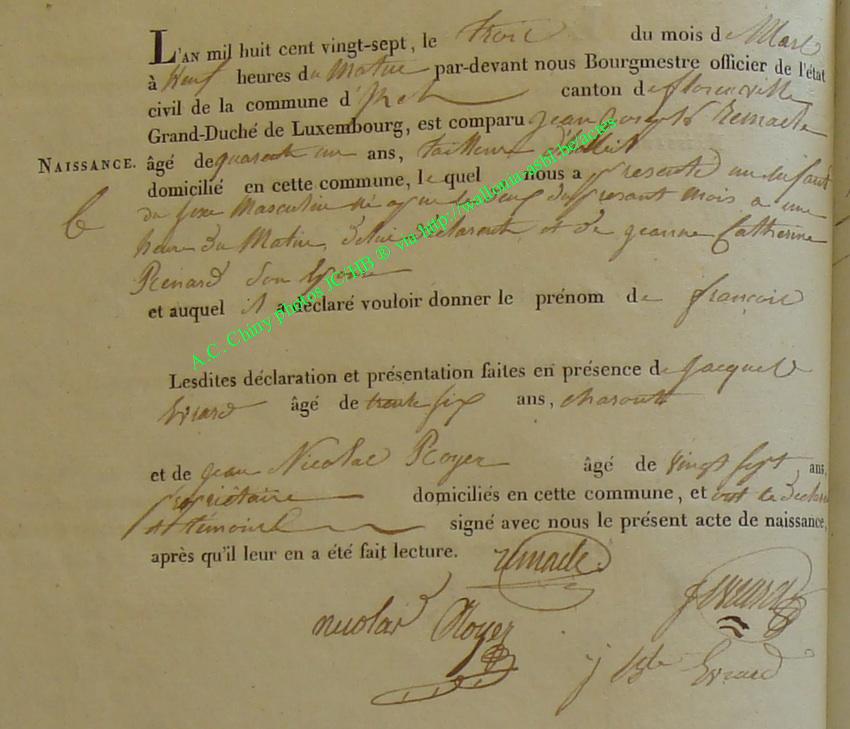 L'AN mil huit cent vingt-sept, le trois du mois de Mars
à Neuf heures du Matin par-devant nous Bourgmestre officier de l'état
civil de la commune d'Izel canton de florenville
Grand-Duché de Luxembourg, est comparu jean joseph Remacle
NAISSANCE. âgé de quarante un ans, tailleur d'habit
domicilié en cette commune, lequel nous a presenté un enfant
du sexe Masculin né du present mois a une
heure du Matin, de lui déclarant et de jeanne Catherine
Renard son Epouse
et auquel il a déclaré vouloir donner le prénom de françois
Lesdites déclaration et présentation faites en présence de Jacques
Evrard âgé de trente six ans, charon
et de jean Nicolas Royer âgé de vingt sept ans,
propriétaire domiciliés en cette commune, et ont le déclarant
et témoins signé avec nous le présent acte de naissance,
après qu'il leur en a été fait lecture. remacle
nicolas Royer
j Evrard
A.C. Chiny photos JC/HB ® via http://wallonia-asbl.be/actes